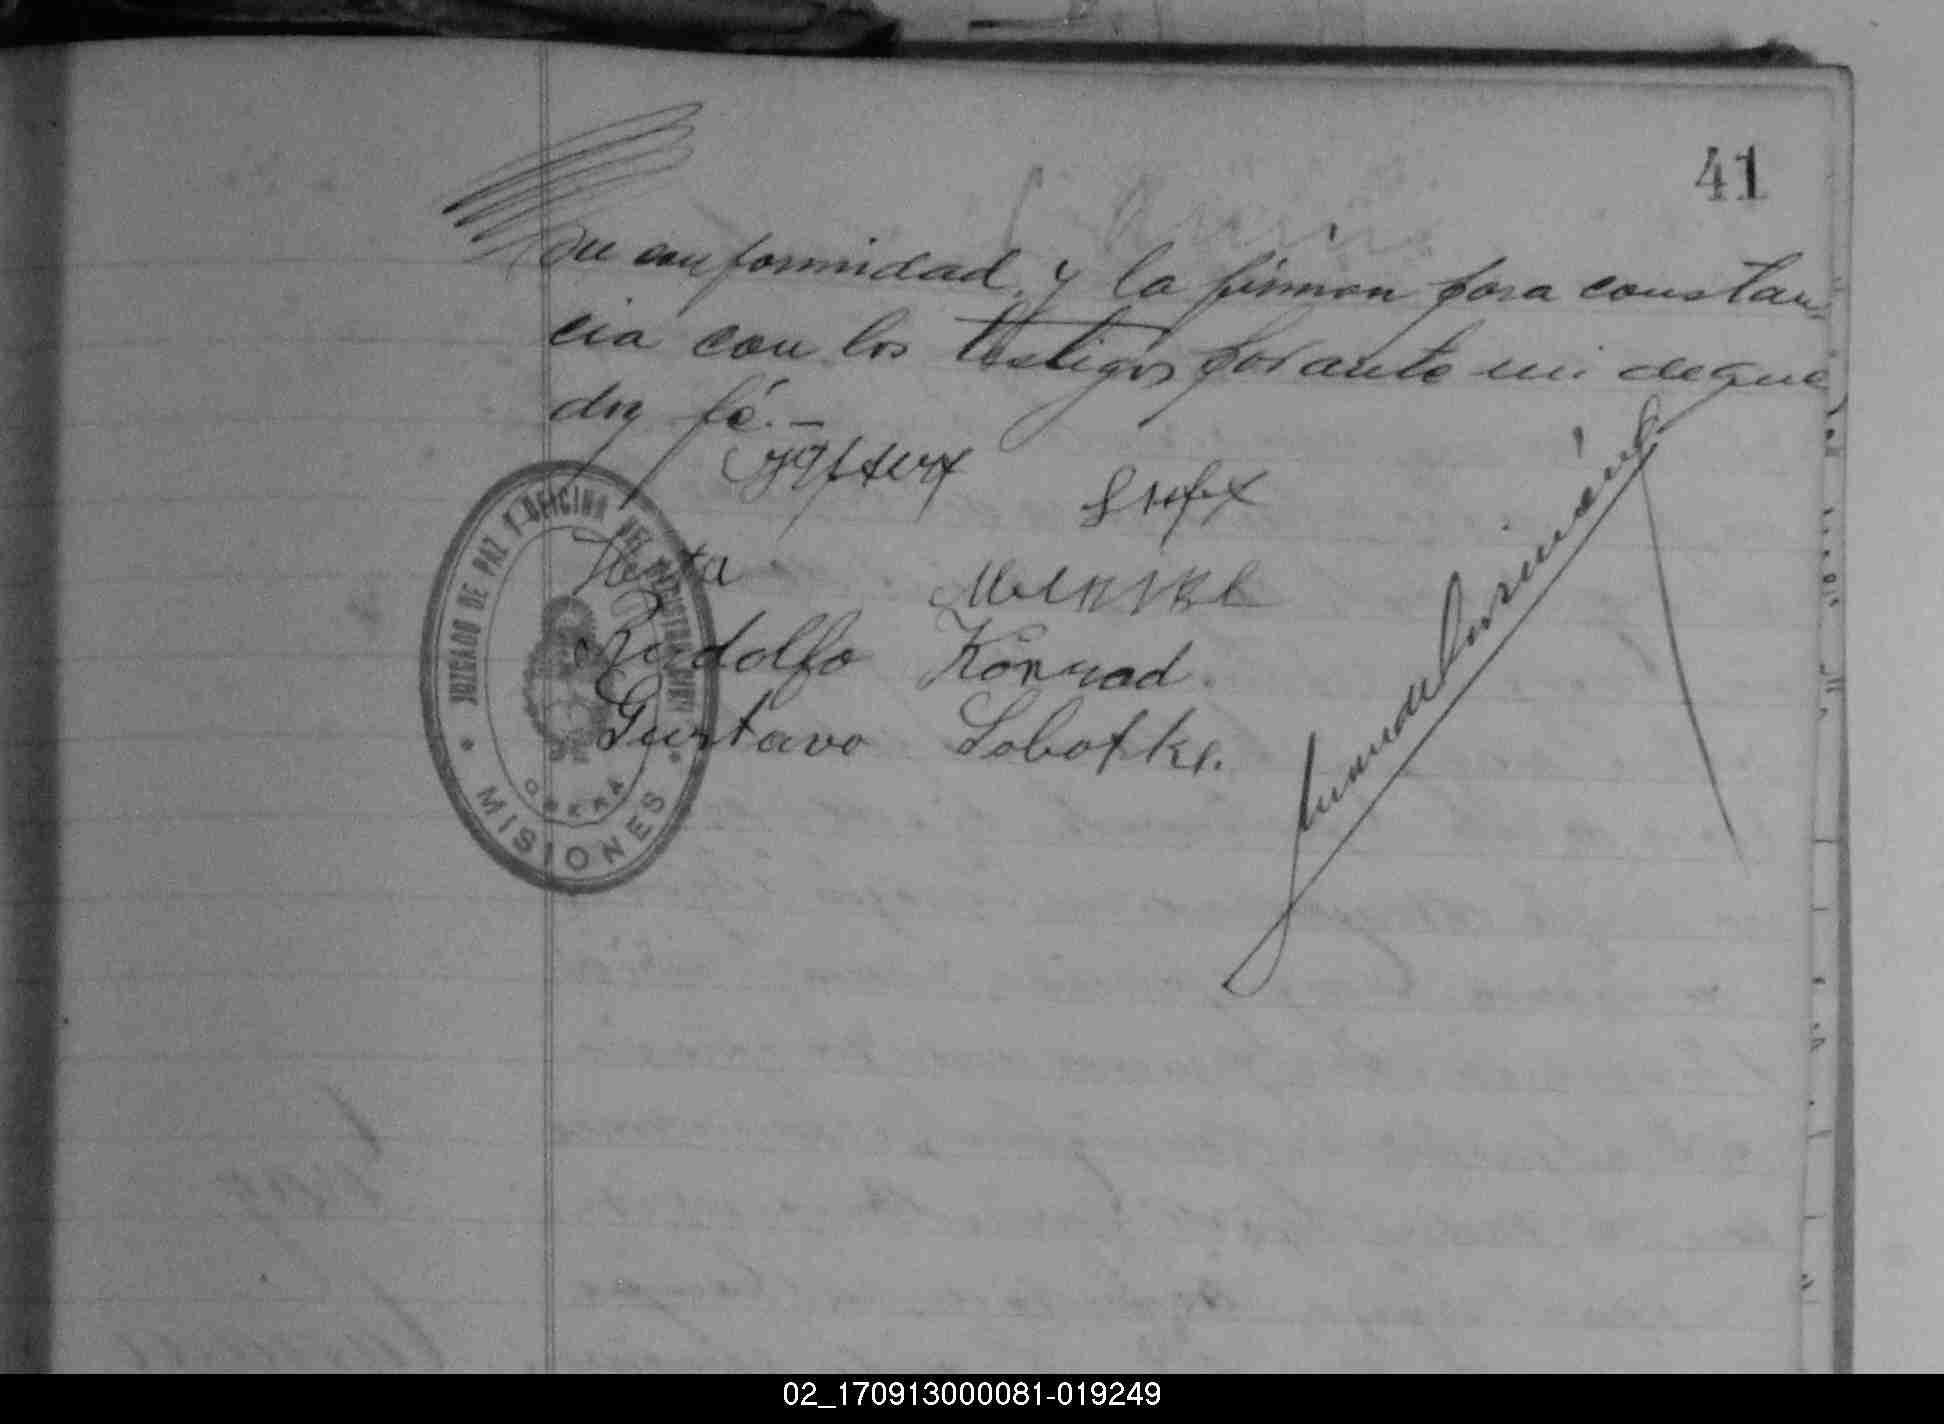 41
su conformidad y la firman para constan
cia con los testigos por ante mi de que
doy fé.-
Herta
Rudolfo Konrad.
Gustavo Sobotke.
JUZGADO DE PAZ Y OFICINA DEL REGISTRO CIVIL
OBERÁ
MISIONES
02_170913000081-019249